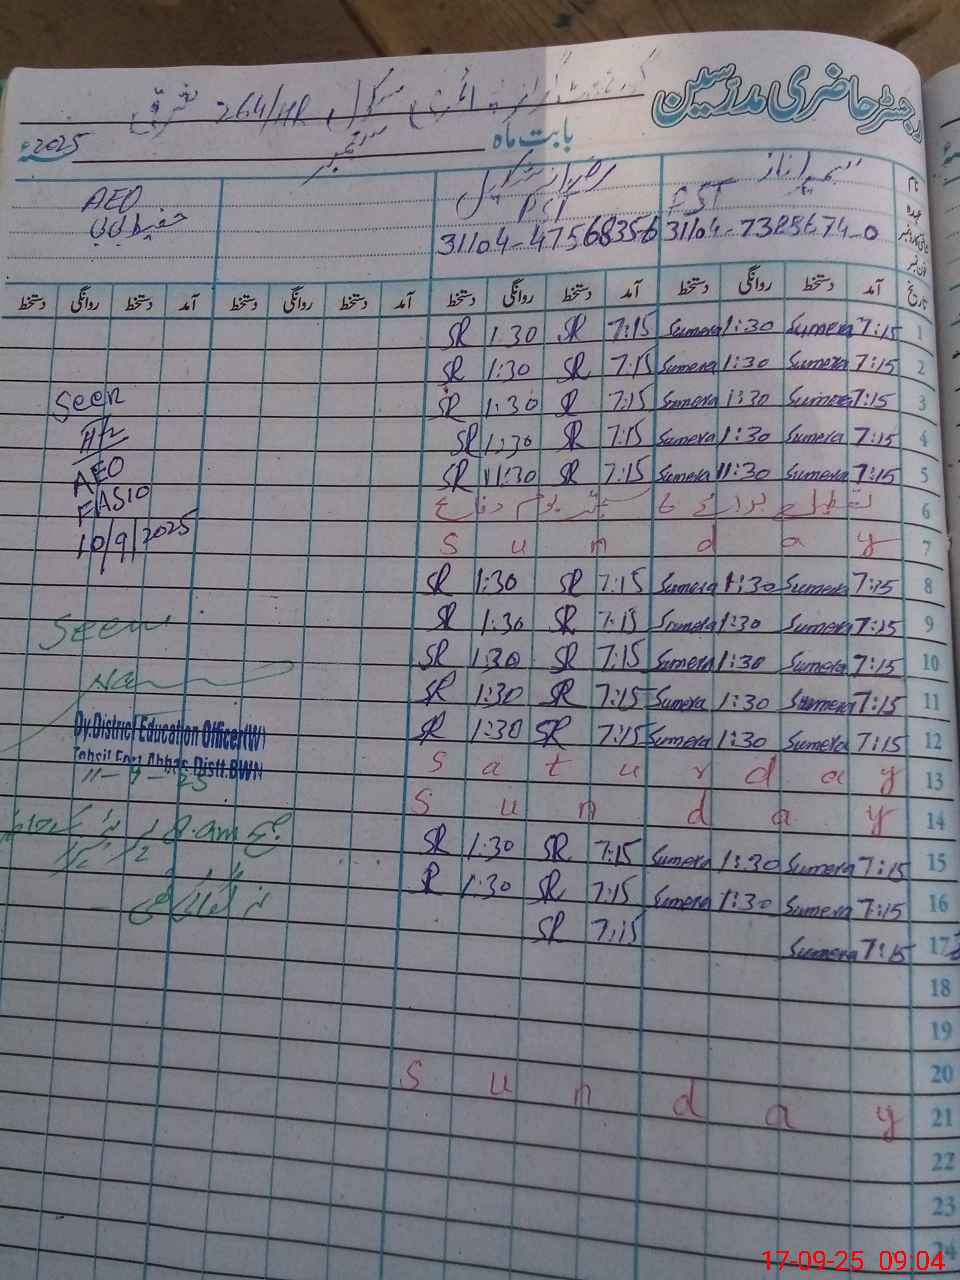 رجسٹر حاضری مدرسین
گورنمنٹ گرلز پرائمری سکول 264/HR شرقی
بابت ماہ ستمبر 2025ء
نام سمیرا ناز AEO
عہدہ PST PST
31104-7385674-0 31104-47568356
تاریخ آمد دستخط روانگی دستخط آمد دستخط روانگی دستخط آمد دستخط روانگی دستخط آمد دستخط روانگی دستخط
1 7:15 Sumera 1:30 Sumera 7:15 SR 1:30 SR
2 7:15 Sumera 1:30 Sumera 7:15 SR 1:30 SR
3 7:15 Sumera 1:30 Sumera 7:15 SR 1:30 SR
4 7:15 Sumera 1:30 Sumera 7:15 SR 1:30 SR
5 7:15 Sumera 11:30 Sumera 7:15 SR 11:30 SR
6 تعطیل برائے 6 ستمبر یوم دفاع
7 Sunday
8 7:15 Sumera 1:30 Sumera 7:15 SR 1:30 SR
9 7:15 Sumera 1:30 Sumera 7:15 SR 1:30 SR
10 7:15 Sumera 1:30 Sumera 7:15 SR 1:30 SR
11 7:15 Sumera 1:30 Sumera 7:15 SR 1:30 SR
12 7:15 Sumera 1:30 Sumera 7:15 SR 1:30 SR
13 Saturday
14 Sunday
15 7:15 Sumera 1:30 Sumera 7:15 SR 1:30 SR
16 7:15 Sumera 1:30 Sumera 7:15 SR 1:30 SR
17 7:15 Sumera 7:15 SR
18
19
20
21 Sunday
22
23
24
Seen
AEO
F/ASIO
10/9/2025
Seen
Dy.District Education Officer(W)
Tehsil Fort Abbas Distt.BWN
11-9-25
8.am
17-09-25 09:04